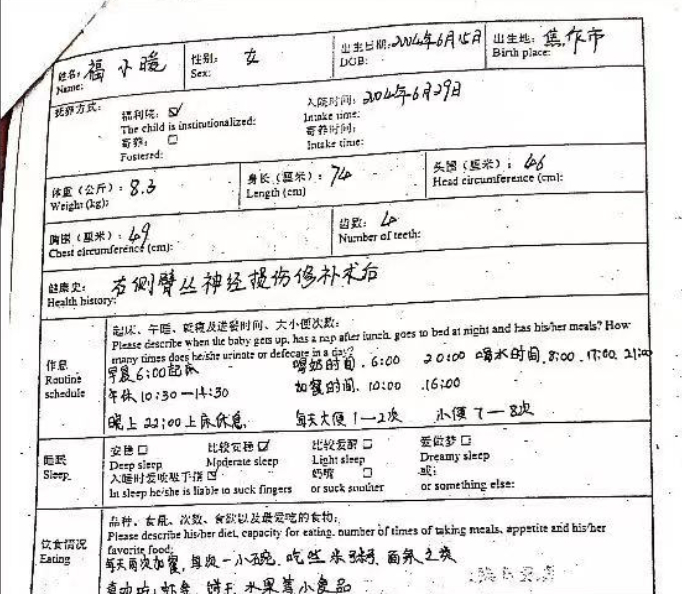 姓名: 福小暖 性别: 女 出生日期: 2004年6月15日 出生地: 焦作市
Name: Sex: DOB: Birth place:
抚养方式: 福利院: ☑ 入院时间: 2004年6月29日
The child is institutionalized: Intake time:
寄养: ☐ 寄养时间:
Fostered: Intake time:
体重(公斤): 8.3 身长(厘米): 74 头围(厘米): 46
Weight (kg): Length (cm) Head circumference (cm):
胸围(厘米): 49 齿数: 4
Chest circumference (cm): Number of teeth:
健康史: 右侧臂丛神经损伤修补术后
Health history:
起床、午睡、就寝及进餐时间、大小便次数:
Please describe when the baby gets up, has a nap after lunch, goes to bed at night and has his/her meals? How
many times does he/she urinate or defecate in a day?
作息
Routine
schedule
早晨6:00起床 喝奶时间. 6:00 20:00 喝水时间. 8:00. 17:00. 21:00
午休10:30—14:30 加餐时间. 10:00 .16:00
晚上22:00上床休息. 每天大便1—2次 小便7—8次
睡眠
Sleep
安稳 ☐ 比较安稳 ☑ 比较爱醒 ☐ 爱做梦 ☐
Deep sleep Moderate sleep Light sleep Dreamy sleep
入睡时爱吮吸手指 ☑ 奶嘴 ☐ 或:
In sleep he/she is liable to suck fingers or suck soother or something else:
饮食情况
Eating
品种、食量、次数、食欲以及最爱吃的食物:
Please describe his/her diet, capacity for eating, number of times of taking meals, appetite and his/her
favorite food:
每天两次加餐, 每次一小碗. 吃些米粥 面条之类
虾条 饼干 水果等小食品